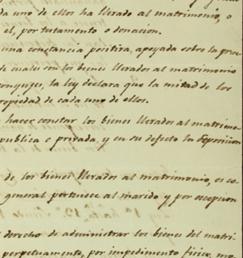 da uno de ellos ha llevado al matrimonio, o
el, por testamento o donacion.
una constancia positiva, apoyada sobre la
de cuales son los bienes llevados al matrimonio
conyuges, la ley declara que la mitad de los
propiedad de cada uno de ellos.
hacer constar los bienes llevados al matrimo
publica o privada, y en su defecto la
de los bienes llevados al matrimonio, es
general pertenece al marido y por escepcion
derecho de administrar los bienes del matri
perpetuamente, por impedimento fisico, mo